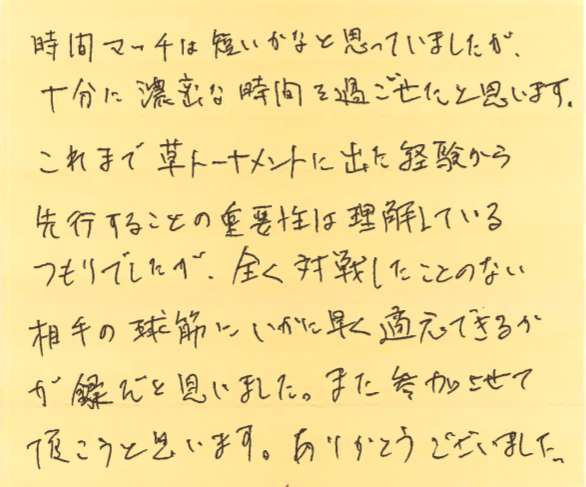 時間マッチは短いかなと思っていましたが、
十分に濃密な時間を過ごせたと思います。
これまで草トーナメントに出た経験から
先行することの重要性は理解している
つもりでしたが、全く対戦したことのない
相手の球筋にいかに早く適応できるか
が鍵だと思いました。また参加させて
頂こうと思います。ありがとうございました。